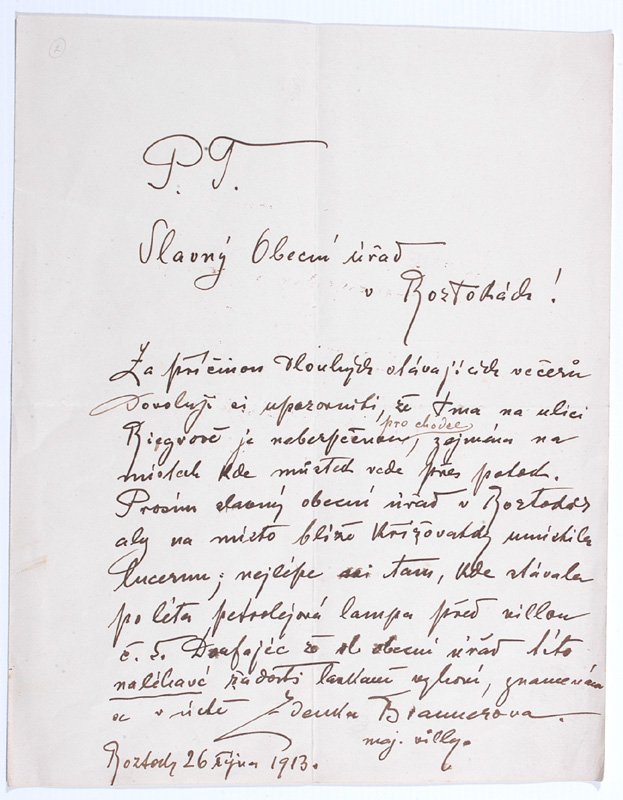 P. T.
Slavný Obecní úřad
v Roztokách!
Za příčinou dlouhých stávajících večerů
dovoluji si upozorniti, že tma na ulici
Riegrově je nebezpečnou pro chodce, zejména na
místech kde můstek vede přes potok.
Prosím slavný obecní úřad v Roztokách
aby na místo blíže křižovatky umístila
lucernu; nejlépe tam, kde stávala
po léta petrolejová lampa před villou
č. 5. Doufajíc že sl obecní úřad této
naléhavé žádosti laskavě vyhoví, znamenám
se v úctě Zdenka Braunerova.
maj. villy.
Roztoky 26 října 1913.